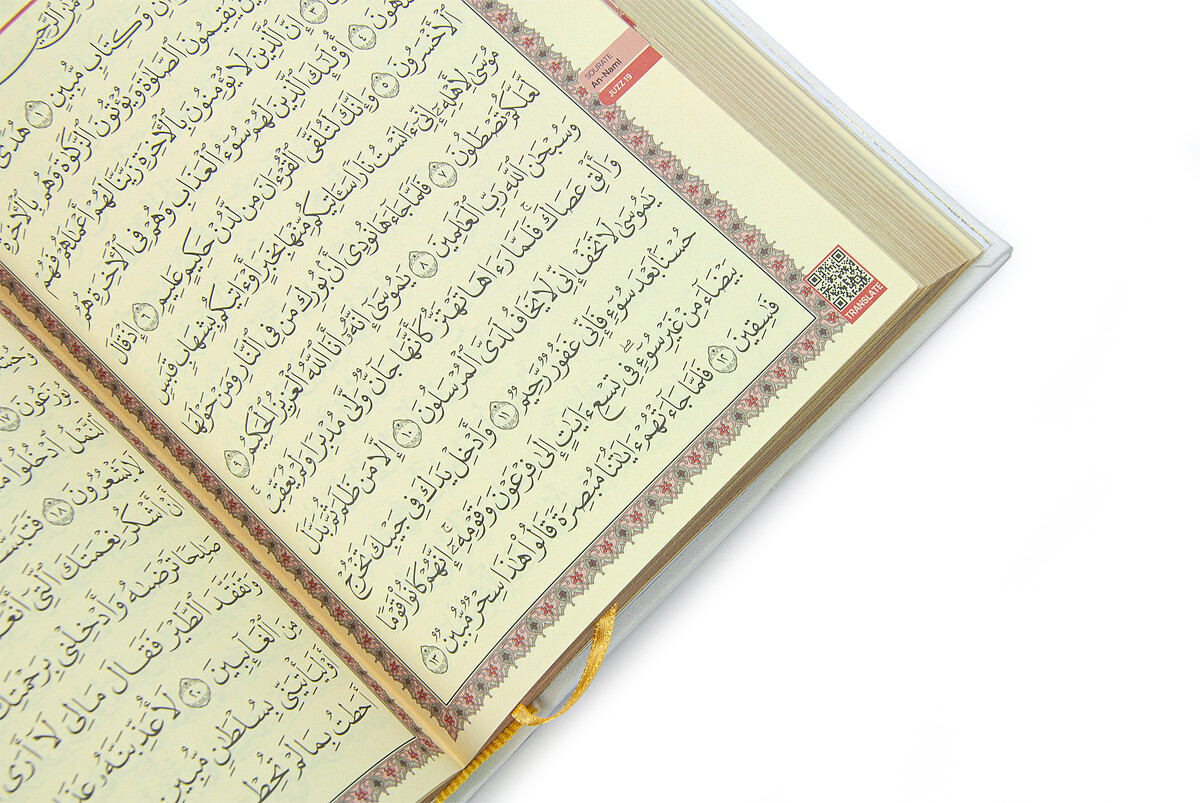 SOURATE
An-Naml
JUZZ 19
وَكِتَابٍ مُّبِينٍ ١ هُدًى
يُقِيمُونَ ٱلصَّلَوٰةَ وَيُؤْتُونَ ٱلزَّكَوٰةَ وَهُم بِٱلْأَخِرَةِ
٣ إِنَّ ٱلَّذِينَ لَا يُؤْمِنُونَ بِٱلْأَخِرَةِ زَيَّنَّا لَهُمْ أَعْمَٰلَهُمْ فَهُمْ
٤ أُوْلَٰٓئِكَ ٱلَّذِينَ لَهُمْ سُوٓءُ ٱلْعَذَابِ وَهُمْ فِى ٱلْأَخِرَةِ هُمُ
ٱلْأَخْسَرُونَ ٥ وَإِنَّكَ لَتُلَقَّى ٱلْقُرْءَانَ مِن لَّدُنْ حَكِيمٍ عَلِيمٍ ٦ إِذْ قَالَ
مُوسَىٰ لِأَهْلِهِۦٓ إِنِّىٓ ءَانَسْتُ نَارًا سَـَٔاتِيكُم مِّنْهَا بِخَبَرٍ أَوْ ءَاتِيكُم بِشِهَابٍ قَبَسٍ
لَّعَلَّكُمْ تَصْطَلُونَ ٧ فَلَمَّا جَآءَهَا نُودِىَ أَنۢ بُورِكَ مَن فِى ٱلنَّارِ وَمَنْ حَوْلَهَا
وَسُبْحَٰنَ ٱللَّهِ رَبِّ ٱلْعَٰلَمِينَ ٨ يَٰمُوسَىٰٓ إِنَّهُۥٓ أَنَا ٱللَّهُ ٱلْعَزِيزُ ٱلْحَكِيمُ ٩
وَأَلْقِ عَصَاكَ ۚ فَلَمَّا رَءَاهَا تَهْتَزُّ كَأَنَّهَا جَآنٌّ وَلَّىٰ مُدْبِرًا وَلَمْ يُعَقِّبْ ۚ
يَٰمُوسَىٰ لَا تَخَفْ إِنِّى لَا يَخَافُ لَدَىَّ ٱلْمُرْسَلُونَ ١٠ إِلَّا مَن ظَلَمَ ثُمَّ بَدَّلَ
حُسْنًۢا بَعْدَ سُوٓءٍ فَإِنِّى غَفُورٌ رَّحِيمٌ ١١ وَأَدْخِلْ يَدَكَ فِى جَيْبِكَ تَخْرُجْ
بَيْضَآءَ مِنْ غَيْرِ سُوٓءٍ ۖ فِى تِسْعِ ءَايَٰتٍ إِلَىٰ فِرْعَوْنَ وَقَوْمِهِۦٓ ۚ إِنَّهُمْ كَانُوا۟ قَوْمًا
فَٰسِقِينَ ١٢ فَلَمَّا جَآءَتْهُمْ ءَايَٰتُنَا مُبْصِرَةً قَالُوا۟ هَٰذَا سِحْرٌ مُّبِينٌ ١٣
TRANSLATE
يُوزَعُونَ ١٧
ٱلنَّمْلُ ٱدْخُلُوا۟
لَا يَشْعُرُونَ ١٨
أَنْ أَشْكُرَ نِعْمَتَكَ ٱلَّتِىٓ
صَٰلِحًا تَرْضَىٰهُ وَأَدْخِلْنِى بِرَحْمَتِكَ
وَتَفَقَّدَ ٱلطَّيْرَ فَقَالَ مَا لِىَ لَآ أَرَى
مِنَ ٱلْغَآئِبِينَ ٢٠ لَأُعَذِّبَنَّهُۥ
لَيَأْتِيَنِّى بِسُلْطَٰنٍ مُّبِينٍ
أَحَطتُ بِمَا لَمْ تُحِطْ